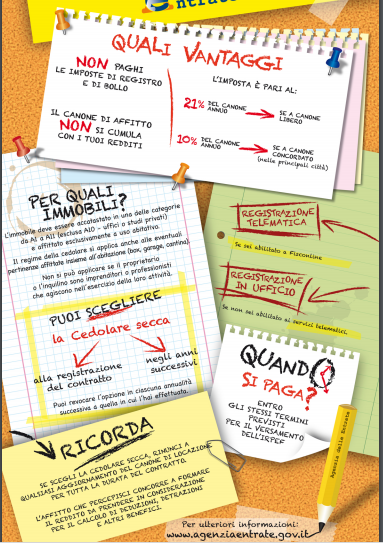 QUALI VANTAGGI
NON PAGHI
LE IMPOSTE DI REGISTRO
E DI BOLLO
IL CANONE DI AFFITTO
NON SI CUMULA
CON I TUOI REDDITI
L'IMPOSTA È PARI AL:
21% DEL CANONE ANNUO
SE A CANONE
LIBERO
10% DEL CANONE ANNUO
SE A CANONE
CONCORDATO
(nelle principali città)
PER QUALI
IMMOBILI?
L'immobile deve essere accatastato in una delle categorie
da A1 a A11 (esclusa A10 - uffici o studi privati)
e affittato esclusivamente a uso abitativo.
Il regime della cedolare si applica anche alle eventuali
pertinenze affittate insieme all'abitazione (box, garage, cantina).
Non si può applicare se il proprietario
o l'inquilino sono imprenditori o professionisti
che agiscono nell'esercizio della loro attività.
PUOI SCEGLIERE
la Cedolare secca
alla registrazione
del contratto
negli anni
successivi
Puoi revocare l'opzione in ciascuna annualità
successiva a quella in cui l'hai effettuata.
REGISTRAZIONE
TELEMATICA
Se sei abilitato a Fisconline
REGISTRAZIONE
IN UFFICIO
Se non sei abilitato ai servizi telematici.
QUANDO
SI PAGA?
ENTRO
GLI STESSI TERMINI
PREVISTI
PER IL VERSAMENTO
DELL'IRPEF
RICORDA
SE SCEGLI LA CEDOLARE SECCA, RINUNCI A
QUALSIASI AGGIORNAMENTO DEL CANONE DI LOCAZIONE
PER TUTTA LA DURATA DEL CONTRATTO.
L'AFFITTO CHE PERCEPISCI CONCORRE A FORMARE
IL REDDITO DA PRENDERE IN CONSIDERAZIONE
PER IL CALCOLO DI DEDUZIONI, DETRAZIONI
E ALTRI BENEFICI.
Agenzia delle Entrate
Per ulteriori informazioni:
www.agenziaentrate.gov.it